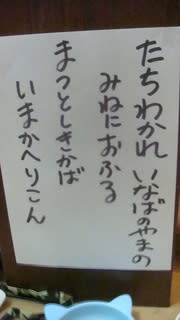 たちわかれ いなばのやまの
みねにおふる
まつとしきかば
いまかへりこん